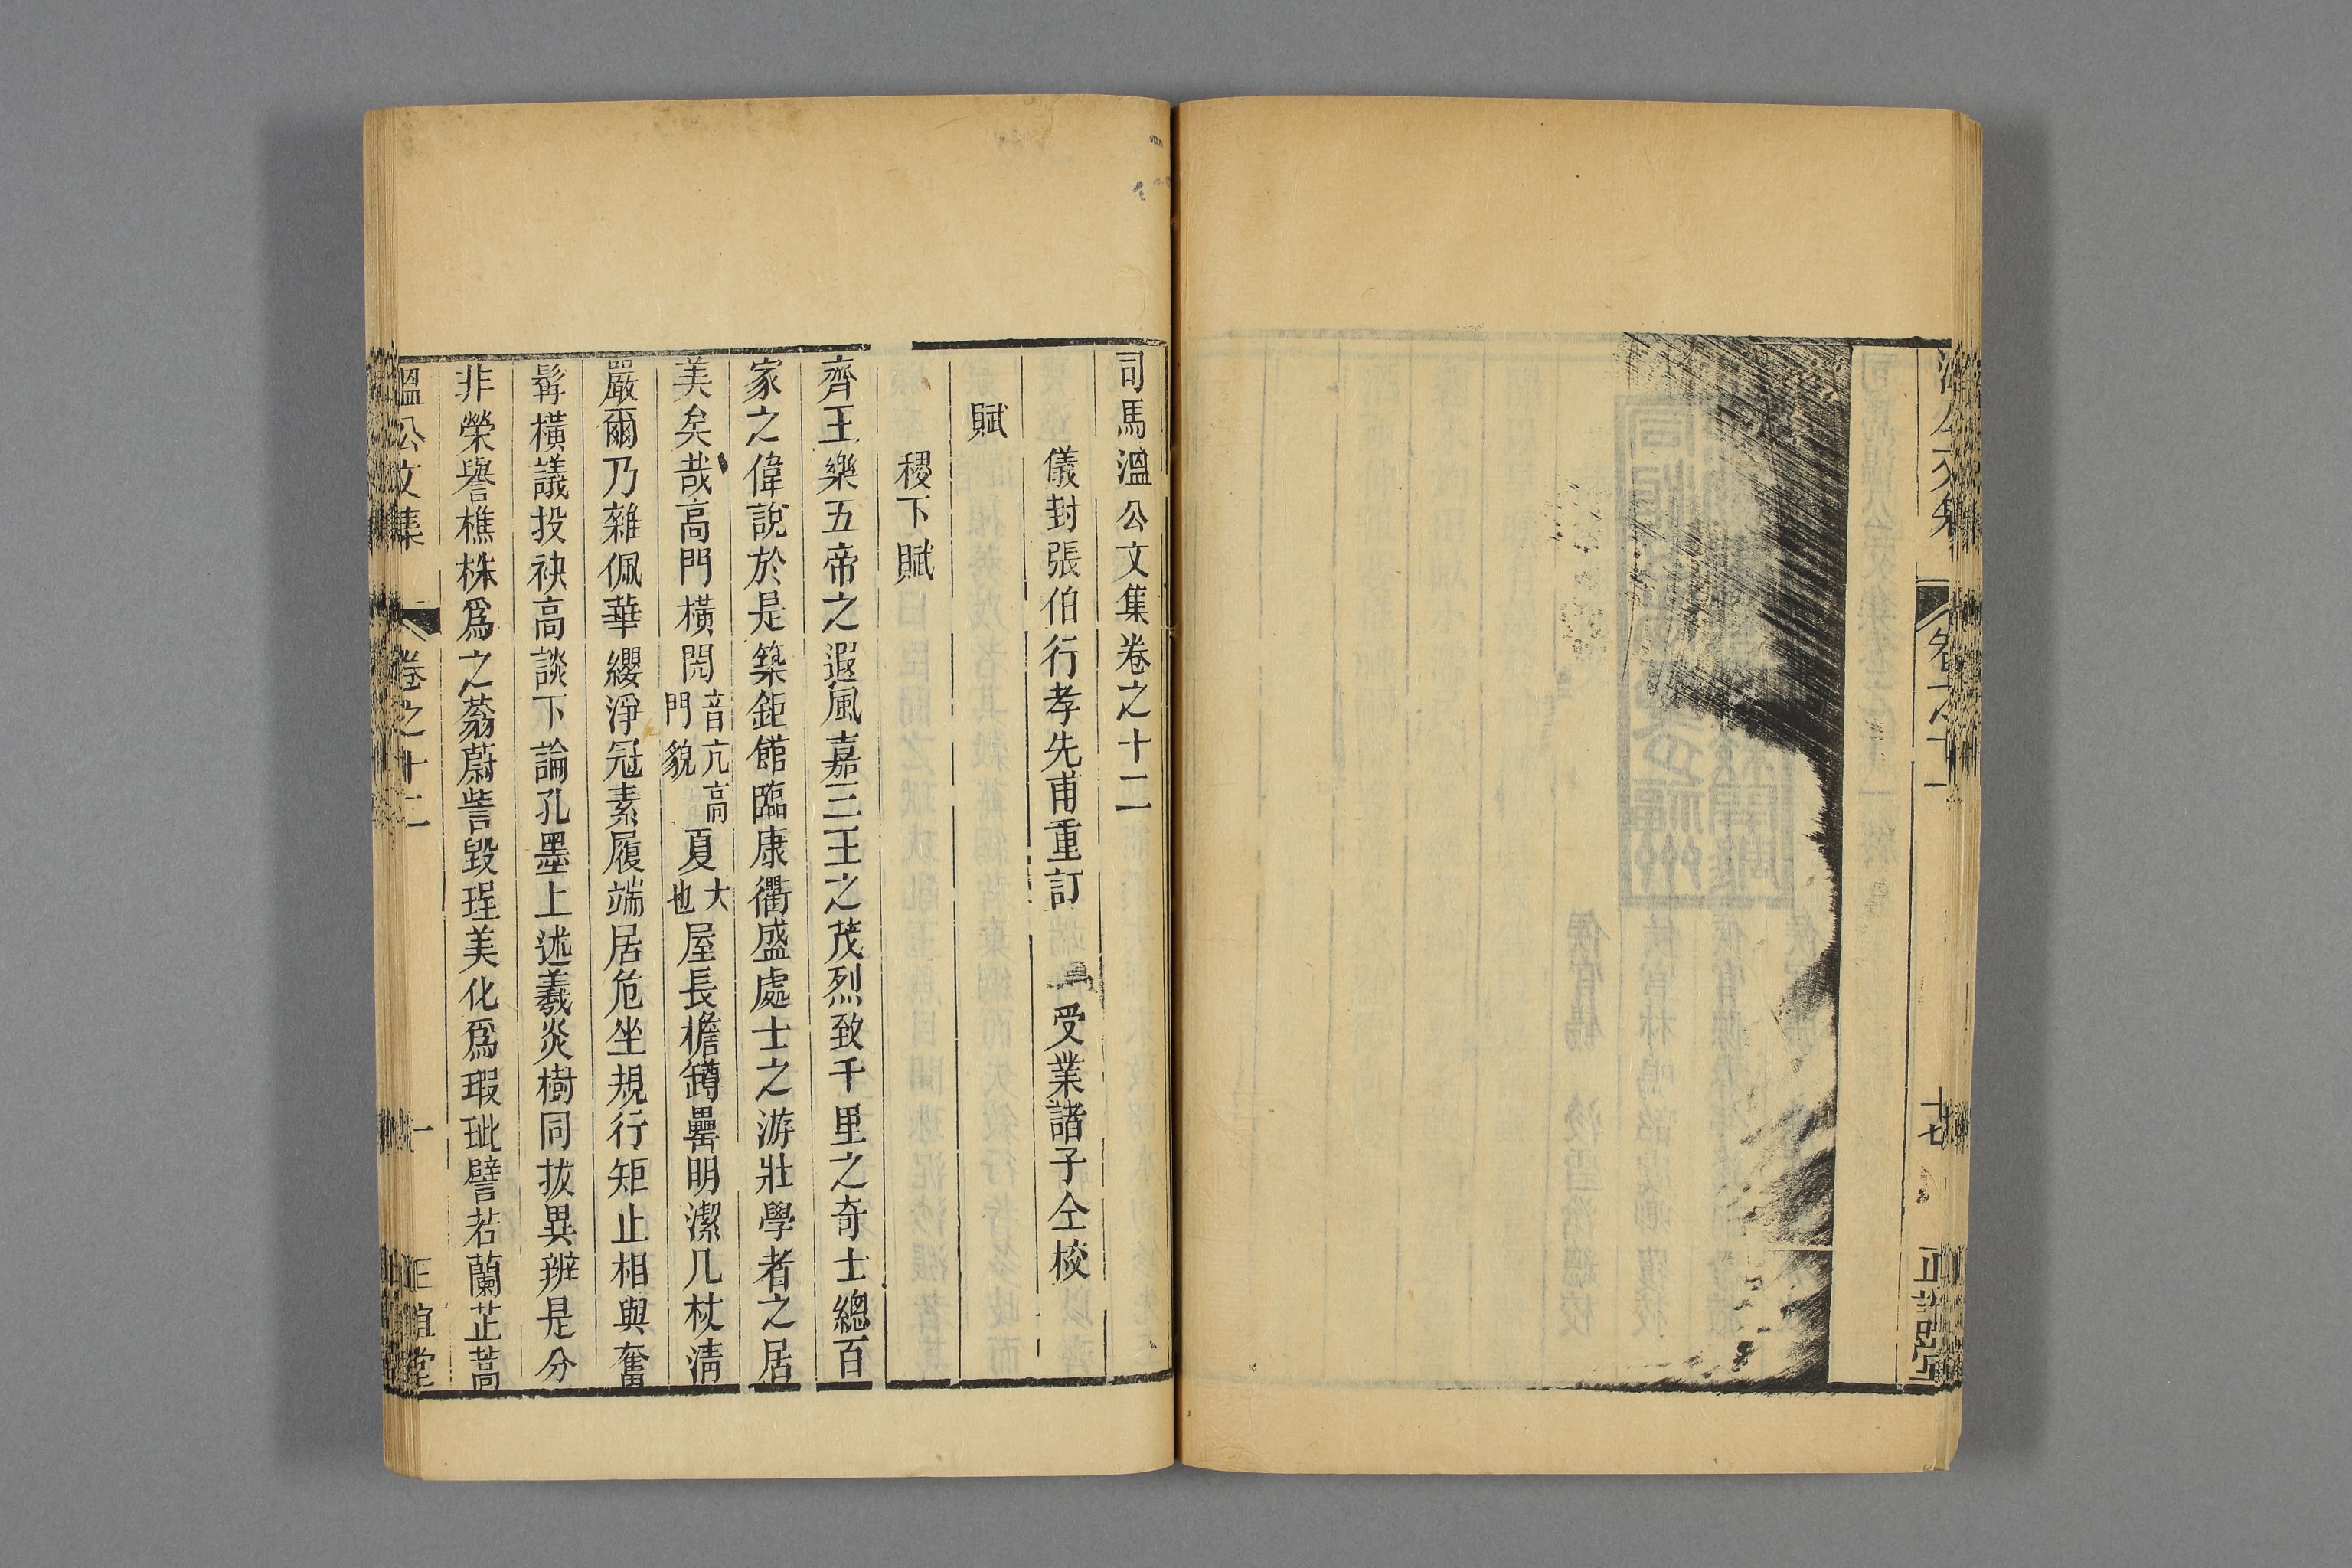 司馬溫公文集卷之十二
儀封張伯行孝先甫重訂 受業諸子仝校
賦
稷下賦
齊王樂五帝之遐風嘉三王之茂烈致千里之奇士總百
家之偉說於是築鉅館臨康衢盛處士之游壯學者之居
美矣哉高門橫閌音亢高門貌夏大也屋長檐罇罍明潔几杖清
嚴爾乃雜佩華纓淨冠素履端居危坐規行矩止相與奮
髯橫議投袂高談下論孔墨上述羲炎樹同拔異辨是分
非榮譽樵株爲之蓊蔚訾毀珵美化爲瑕玼譬若蘭芷蒿
溫公文集 卷之十二 一 正誼堂